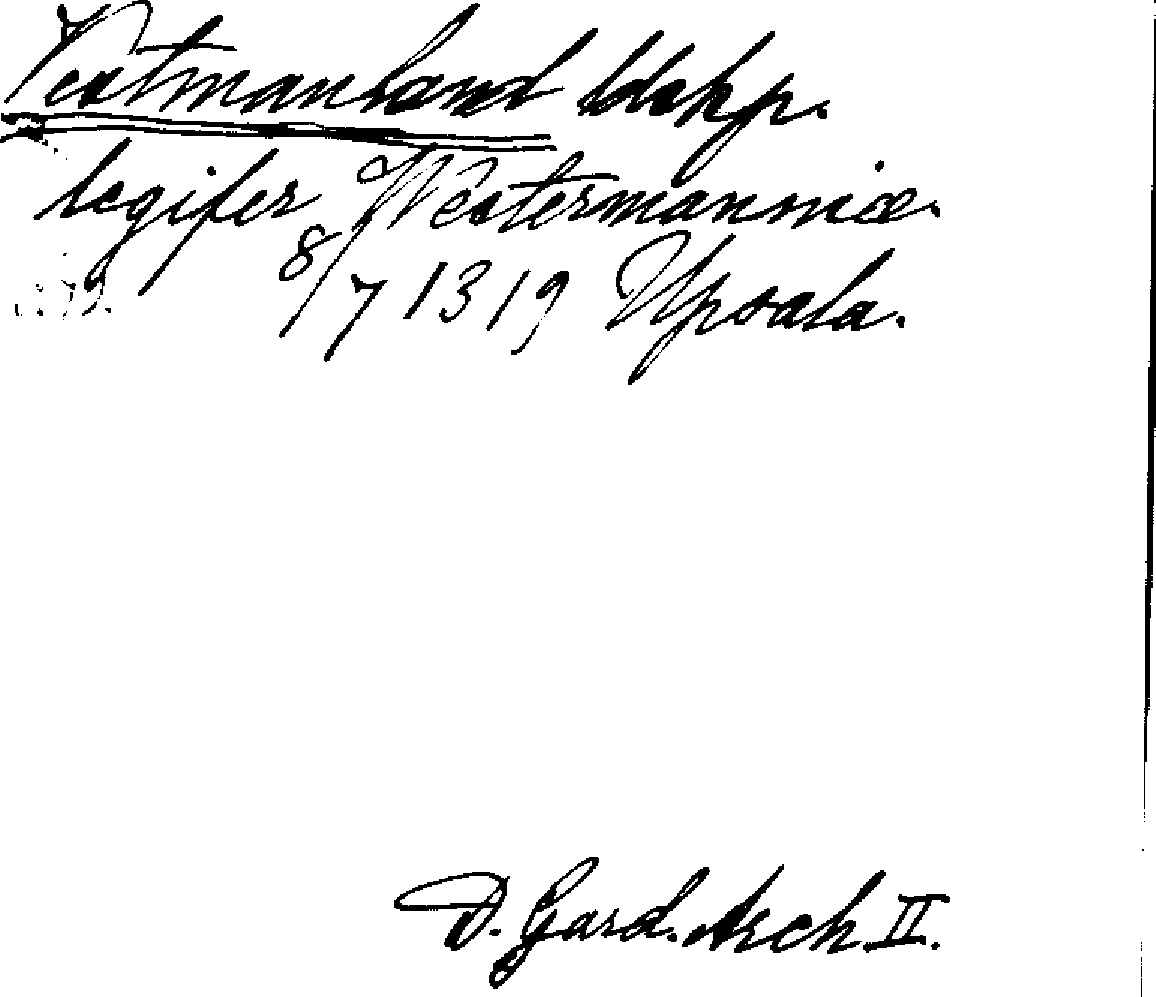 Vestmanland ldskp.
legifer Westermanniæ.
8/7 1319 Upsala.
D. Gard. Arch. II.